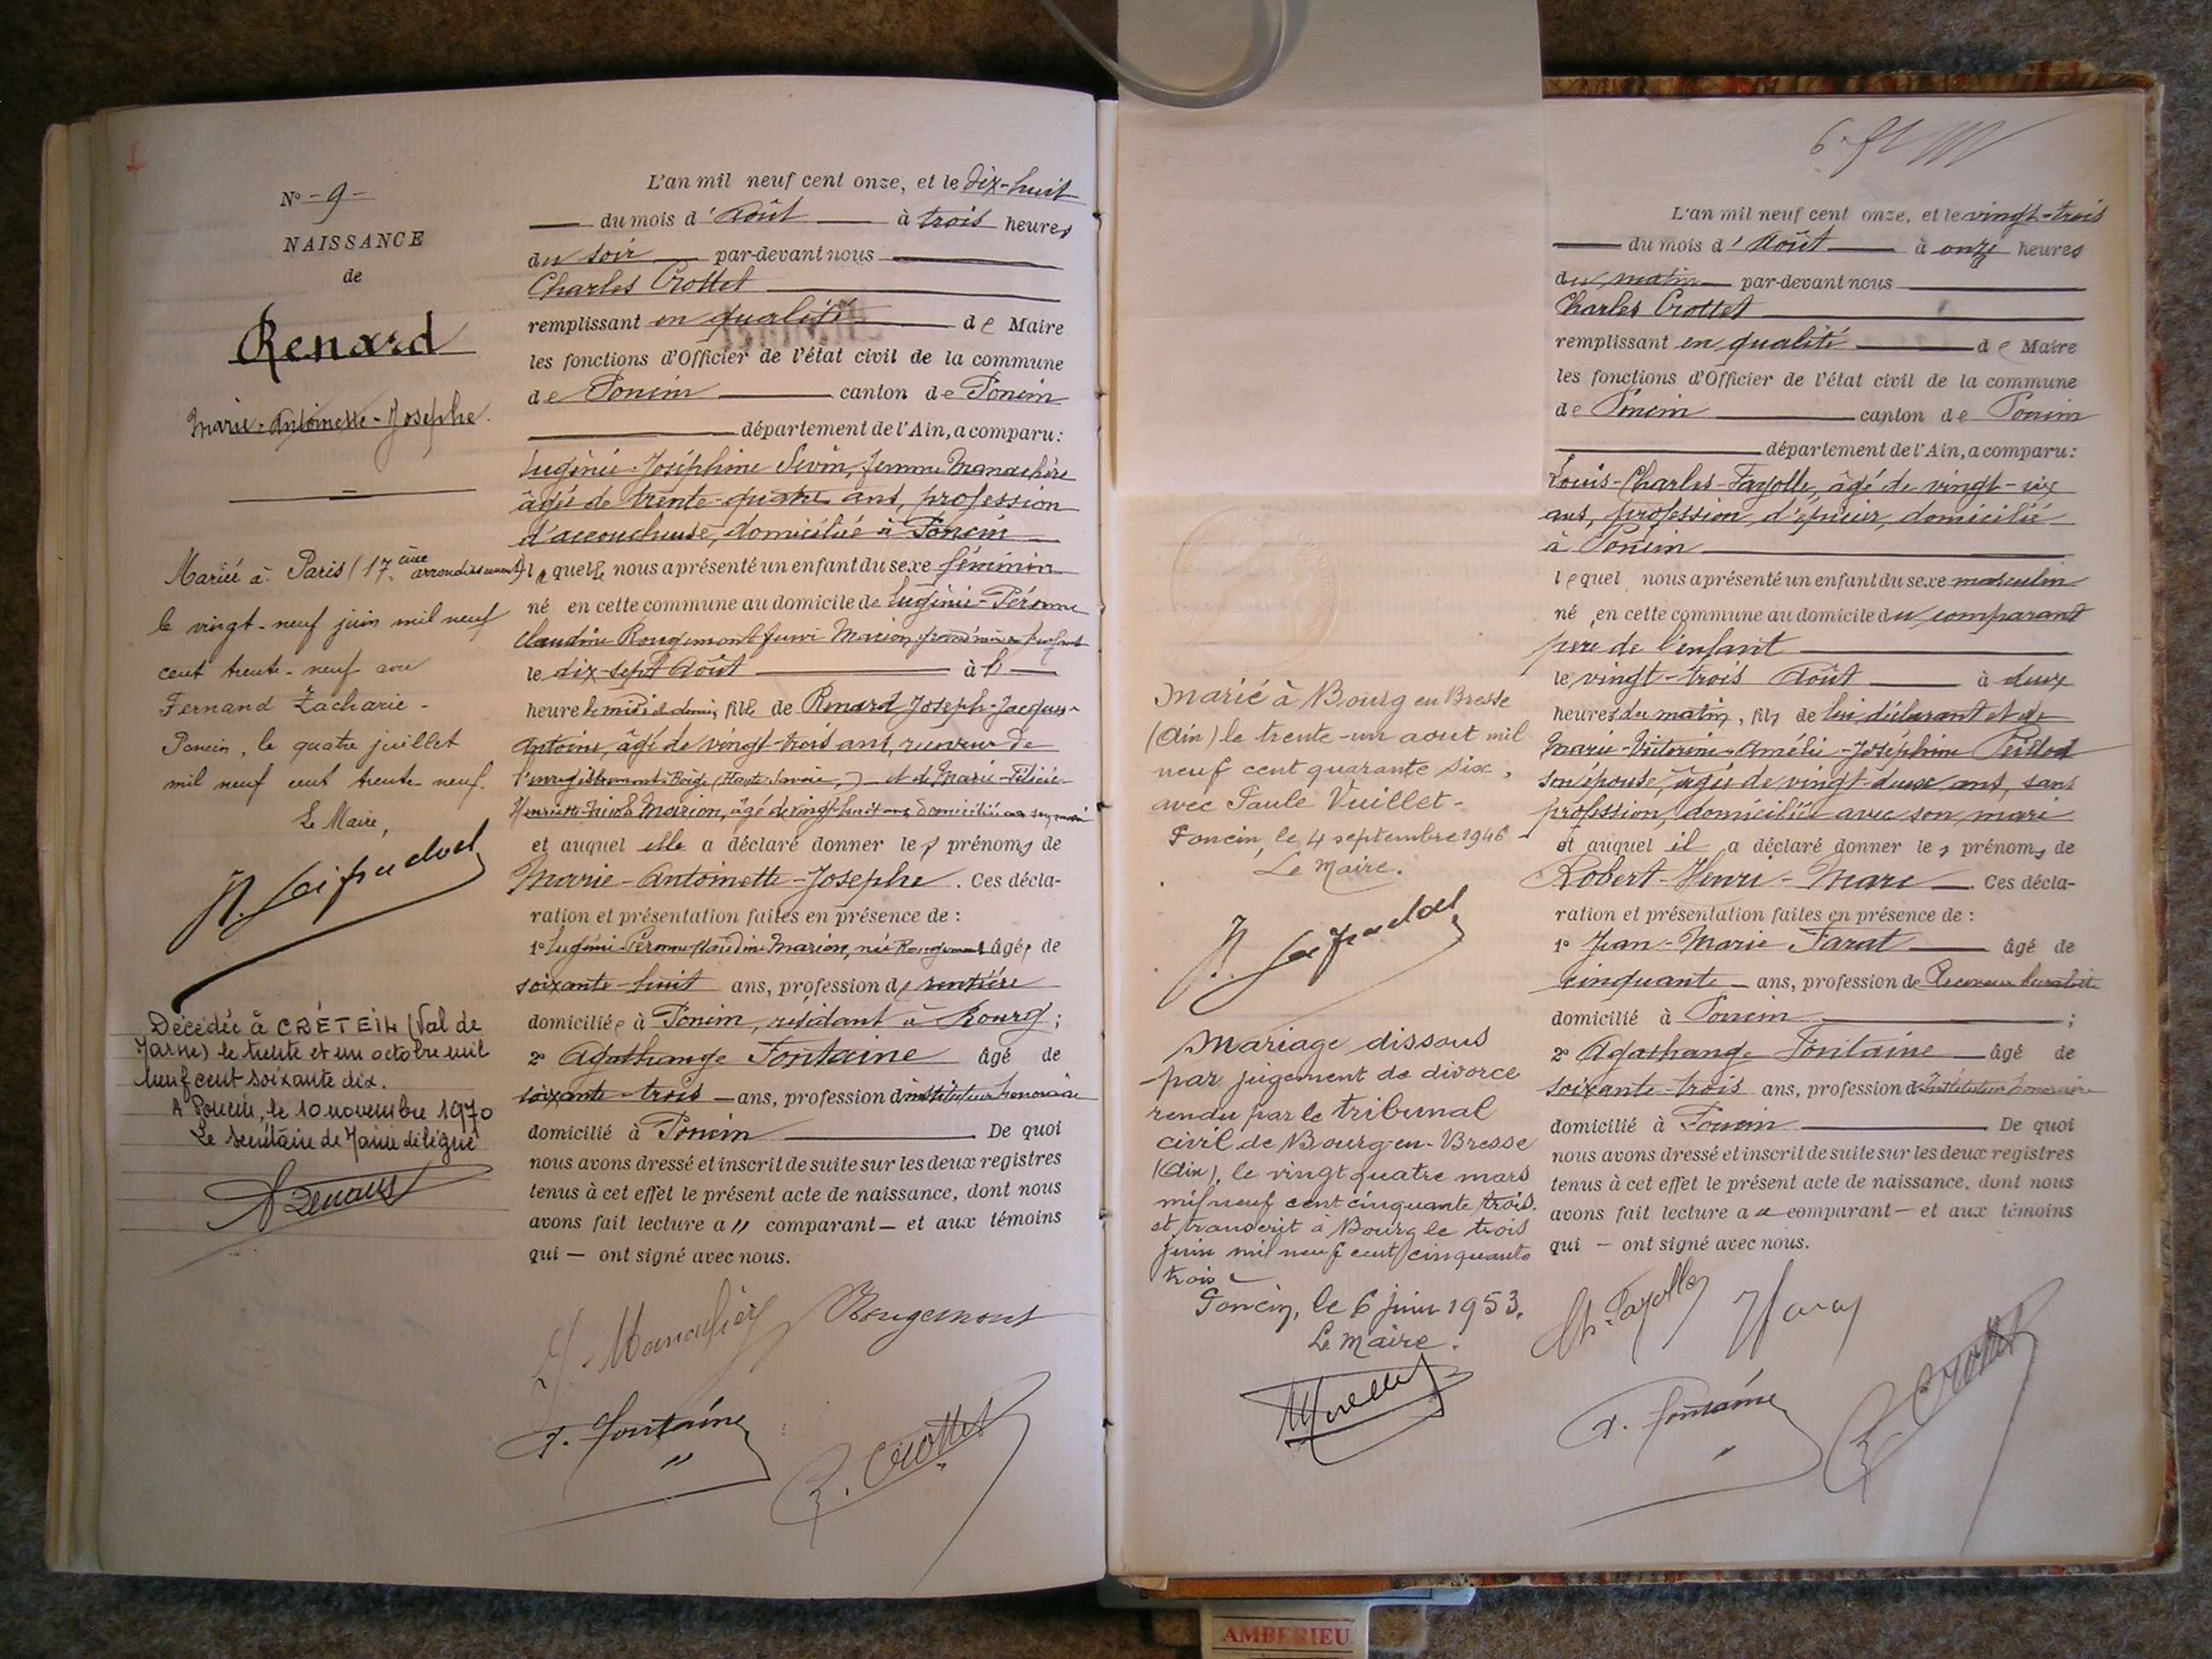 N° - 9 -
NAISSANCE
de
Renard
Marie-Antoinette-Josephe.
Mariée à Paris (17ème arrondissement)
le vingt-neuf juin mil neuf
cent trente-neuf avec
Fernand Zacharie -
Poncin, le quatre juillet
mil neuf cent trente-neuf.
Le Maire,
Décédée à CRÉTEIL (Val de
Marne) le trente et un octobre mil
neuf cent soixante dix.
A Poncin, le 10 novembre 1970
Le secrétaire de Mairie délégué
L'an mil neuf cent onze, et le dix-huit
du mois d'Août à trois heures
du soir par-devant nous
Charles Crottet
remplissant en qualité de Maire
les fonctions d'Officier de l'état civil de la commune
de Poncin canton de Poncin
département de l'Ain, a comparu:
Eugénie-Joséphine Sevin, femme Manachère
âgée de trente-quatre ans, profession
d'accoucheuse, domiciliée à Poncin
laquelle nous a présenté un enfant du sexe féminin
né en cette commune au domicile de Eugénie-Péronne
Claudine Rougemont Marion
le dix-sept Août à
heure midi et demi, fille de Renard Joseph-Jacques-
Antoine, âgé de vingt-trois ans, receveur de
l'enregistrement à Boëge (Haute-Savoie) et de Marie-Félicie-
Henriette Marion, âgé de vingt-huit ans domiciliée
et auquel elle a déclaré donner les prénoms de
Marie-Antoinette-Josephe. Ces décla-
ration et présentation faites en présence de :
1° Eugénie-Péronne-Claudine Marion, née Rougemont âgée de
soixante-huit ans, profession de rentière
domiciliée à Poncin, résidant à Bourg ;
2° Agathange Fontaine âgé de
soixante-trois ans, profession d'instituteur honoraire
domicilié à Poncin De quoi
nous avons dressé et inscrit de suite sur les deux registres
tenus à cet effet le présent acte de naissance, dont nous
avons fait lecture a " comparant — et aux témoins
qui — ont signé avec nous.
Rougemont
A. Fontaine
C. Crottet
Marié à Bourg en Bresse
(Ain) le trente-un aout mil
neuf cent quarante six,
avec Paule Vuillet-
Poncin, le 4 septembre 1946 -
Le Maire.
Mariage dissous
par jugement de divorce
rendu par le tribunal
civil de Bourg-en-Bresse
(Ain), le vingt quatre mars
mil neuf cent cinquante trois.
et transcrit à Bourg le trois
juin mil neuf cent cinquante
trois -
Poncin, le 6 juin 1953.
Le Maire.
L'an mil neuf cent onze, et le vingt-trois
du mois d'Août à onze heures
du matin par-devant nous
Charles Crottet
remplissant en qualité de Maire
les fonctions d'Officier de l'état civil de la commune
de Poncin canton de Poncin
département de l'Ain, a comparu:
Louis-Charles Fayolle, âgé de vingt-six
ans, profession d'épicier, domicilié
à Poncin
lequel nous a présenté un enfant du sexe masculin
né en cette commune au domicile du comparant
père de l'enfant
le vingt-trois Août à deux
heures du matin, fils de lui, déclarant et de
Marie-Victorine-Amélie-Joséphine Peillod
son épouse, âgée de vingt-deux ans, sans
profession, domiciliée avec son mari
et auquel il a déclaré donner les prénoms de
Robert-Henri-Marc. Ces décla-
ration et présentation faites en présence de :
1° Jean-Marie Farat âgé de
cinquante ans, profession de Receveur buraliste
domicilié à Poncin ;
2° Agathange Fontaine âgé de
soixante-trois ans, profession d'Instituteur honoraire
domicilié à Poncin De quoi
nous avons dressé et inscrit de suite sur les deux registres
tenus à cet effet le présent acte de naissance, dont nous
avons fait lecture au comparant — et aux témoins
qui — ont signé avec nous.
Ch. Fayolle
A. Fontaine
C. Crottet
AMBERIEU